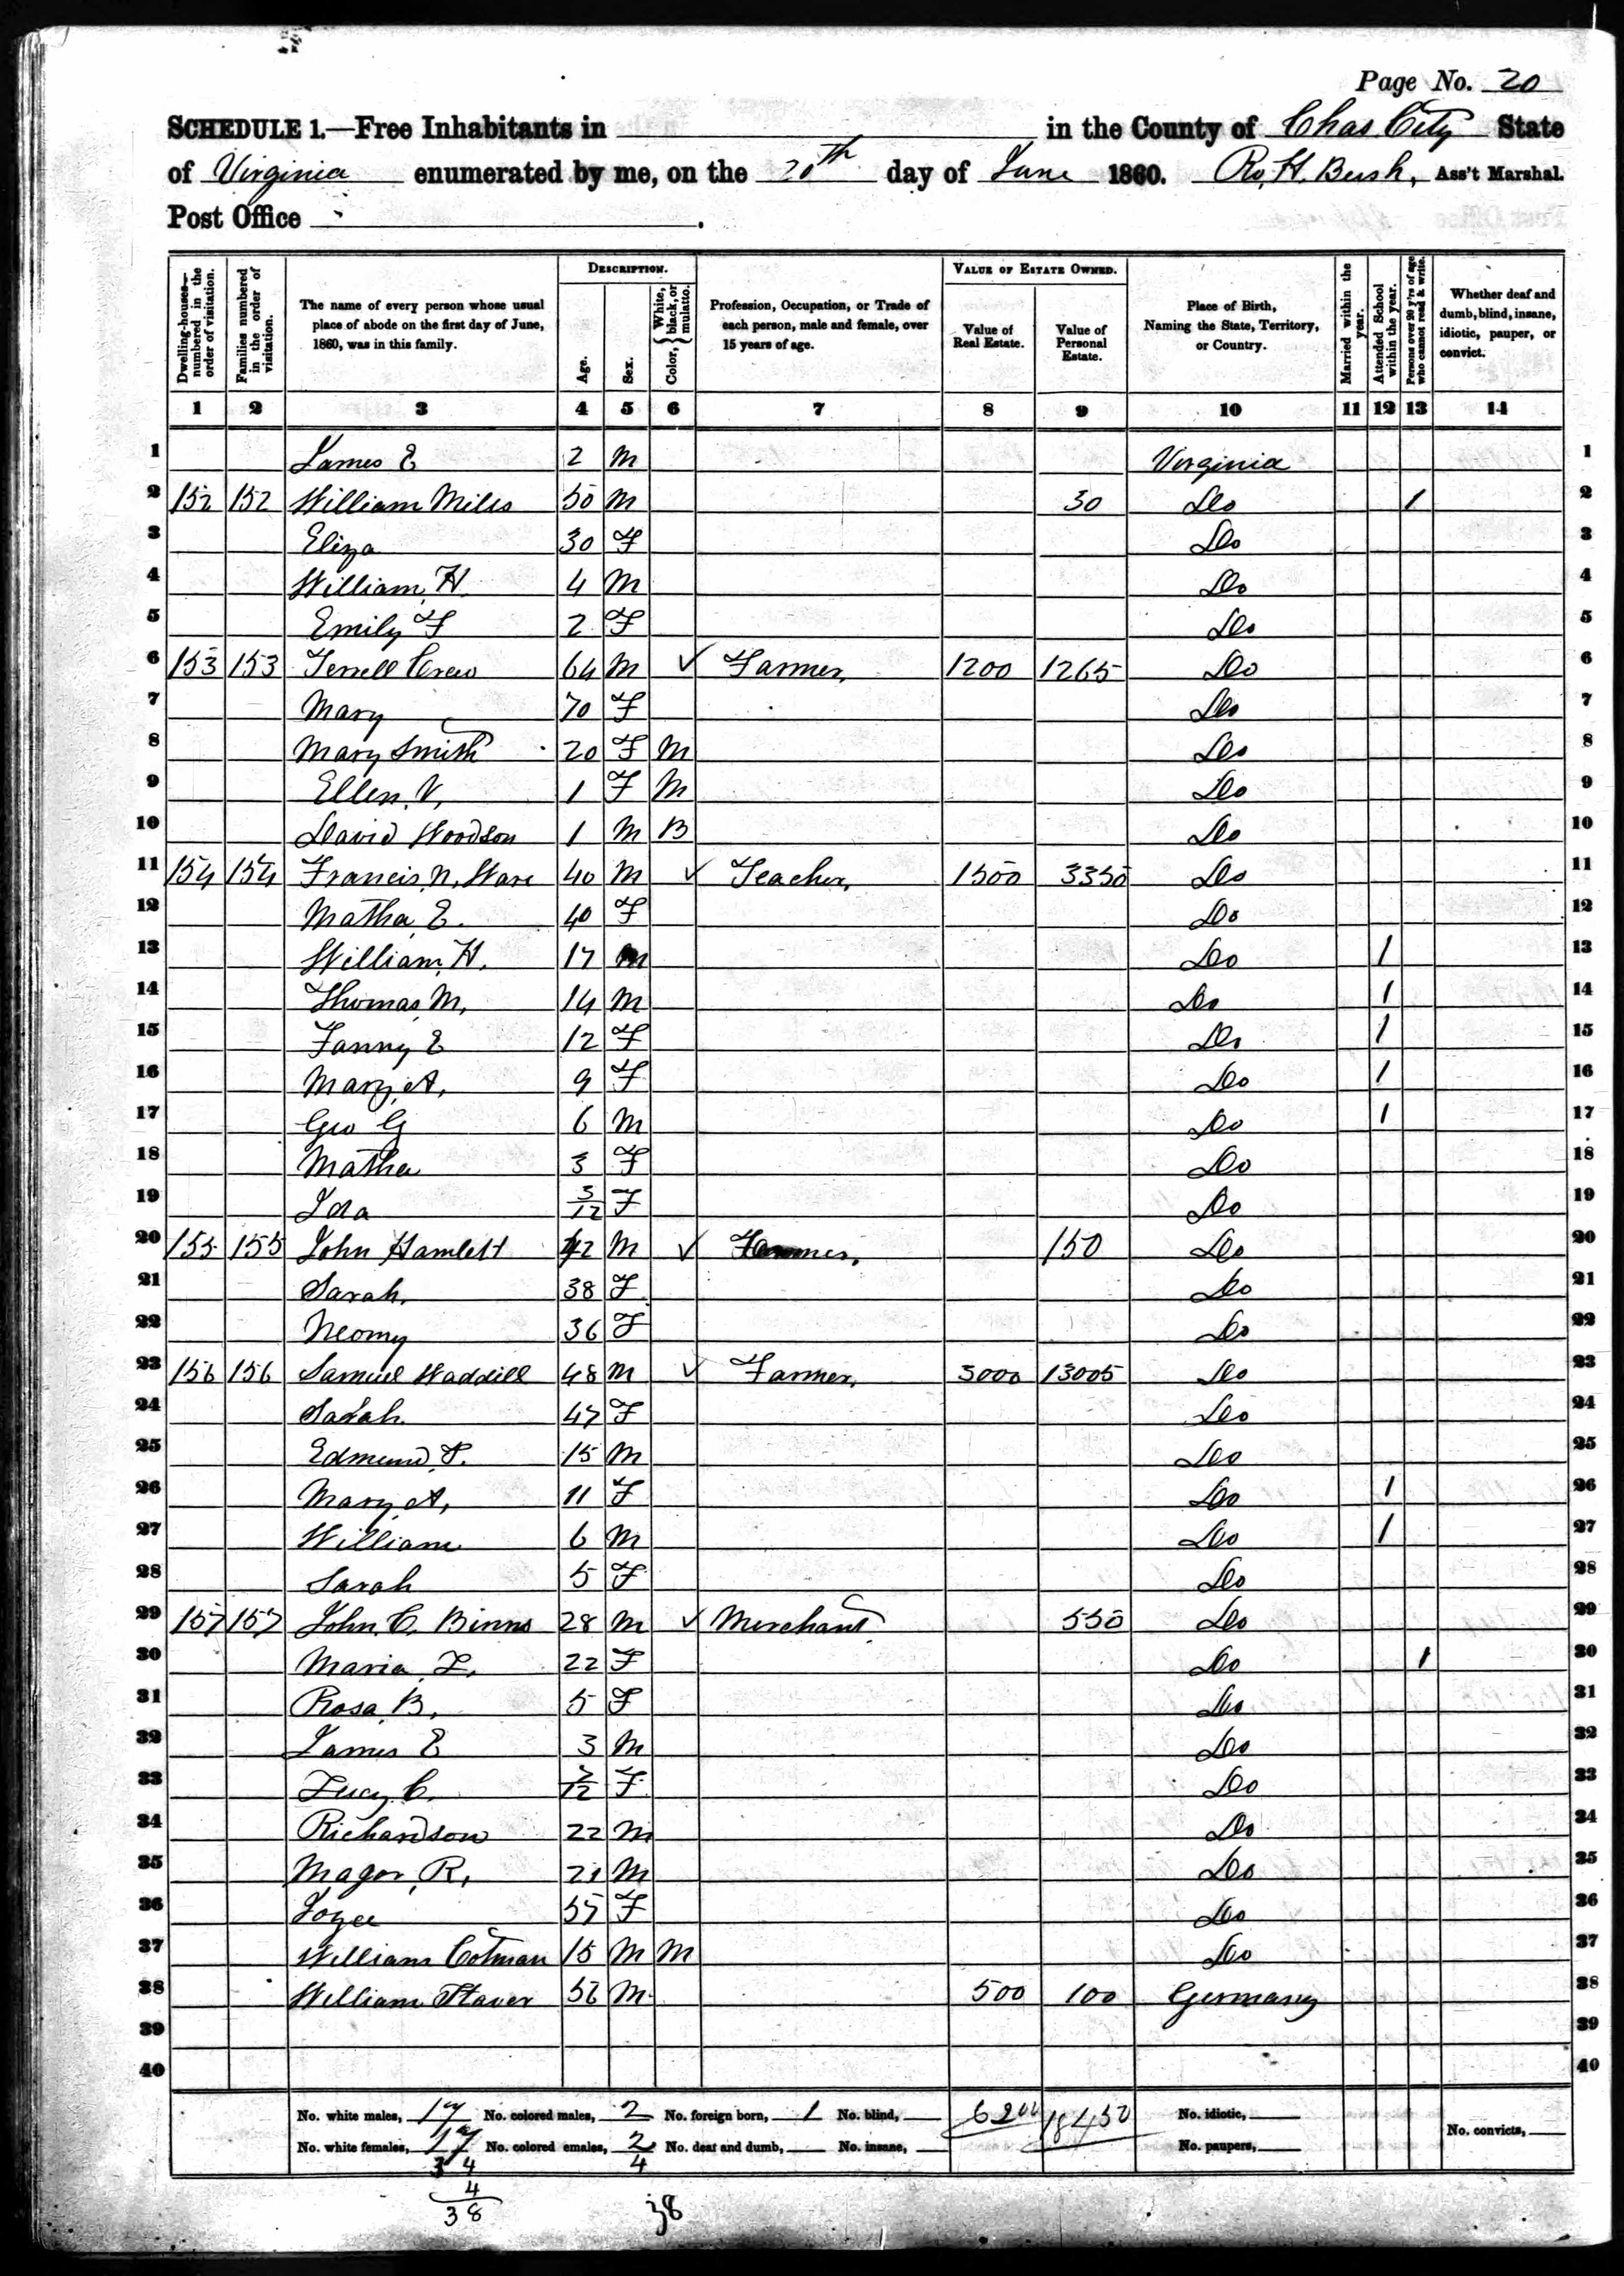 Page No. 20
SCHEDULE 1.—Free Inhabitants in in the County of Chas City State
of Virginia enumerated by me, on the 20th day of June 1860. Ro. H. Bush, Ass't Marshal.
Post Office
Dwelling-houses—numbered in the order of visitation.
Families numbered in the order of visitation.
The name of every person whose usual place of abode on the first day of June, 1860, was in this family.
DESCRIPTION.
Age.
Sex.
Color, { White, black, or mulatto.
Profession, Occupation, or Trade of each person, male and female, over 15 years of age.
VALUE OF ESTATE OWNED.
Value of Real Estate.
Value of Personal Estate.
Place of Birth, Naming the State, Territory, or Country.
Married within the year.
Attended School within the year.
Persons over 20 y'rs of age who cannot read & write.
Whether deaf and dumb, blind, insane, idiotic, pauper, or convict.
1 2 3 4 5 6 7 8 9 10 11 12 13 14
1 James E 2 M Virginia 1
2 152 152 William Mills 50 M 30 Do 1 2
3 Eliza 30 F Do 3
4 William H 4 M Do 4
5 Emily F 2 F Do 5
6 153 153 Terrell Crew 64 M ✓ Farmer, 1200 1265 Do 6
7 Mary 70 F Do 7
8 Mary Smith 20 F M Do 8
9 Ellen V, 1 F M Do 9
10 David Woodson 1 M B Do 10
11 154 154 Francis N, Ware 40 M ✓ Teacher, 1500 3350 Do 11
12 Matha E. 40 F Do 12
13 William H, 17 M Do 1 13
14 Thomas M, 14 M Do 1 14
15 Fanny E 12 F Do 1 15
16 Mary A, 9 F Do 1 16
17 Geo G 6 M Do 1 17
18 Matha 3 F Do 18
19 Ida 3/12 F Do 19
20 155 155 John Hamlett 42 M ✓ Farmer, 150 Do 20
21 Sarah, 38 F Do 21
22 Neomy 36 F Do 22
23 156 156 Samuel Waddill 48 M ✓ Farmer, 3000 13005 Do 23
24 Sarah 47 F Do 24
25 Edmund T. 15 M Do 25
26 Mary A, 11 F Do 1 26
27 William 6 M Do 1 27
28 Sarah 5 F Do 28
29 157 157 John C. Binns 28 M ✓ Merchant 550 Do 29
30 Maria F, 22 F Do 1 30
31 Rosa B, 5 F Do 31
32 James E 3 M Do 32
33 Lucy C. F Do 33
34 Richardson 22 M Do 34
35 Magor R, 21 M Do 35
36 Joyce F Do 36
37 William Cotman 15 M M Do 37
38 William 56 M 500 100 Germany 38
39 39
40 40
No. white males, 17 No. colored males, 2 No. foreign born, 1 No. blind, 6200 18450 No. idiotic,
No. white females, 17 No. colored emales, 2 No. deaf and dumb, No. insane, No. paupers, No. convicts,
34 4
4
38 38